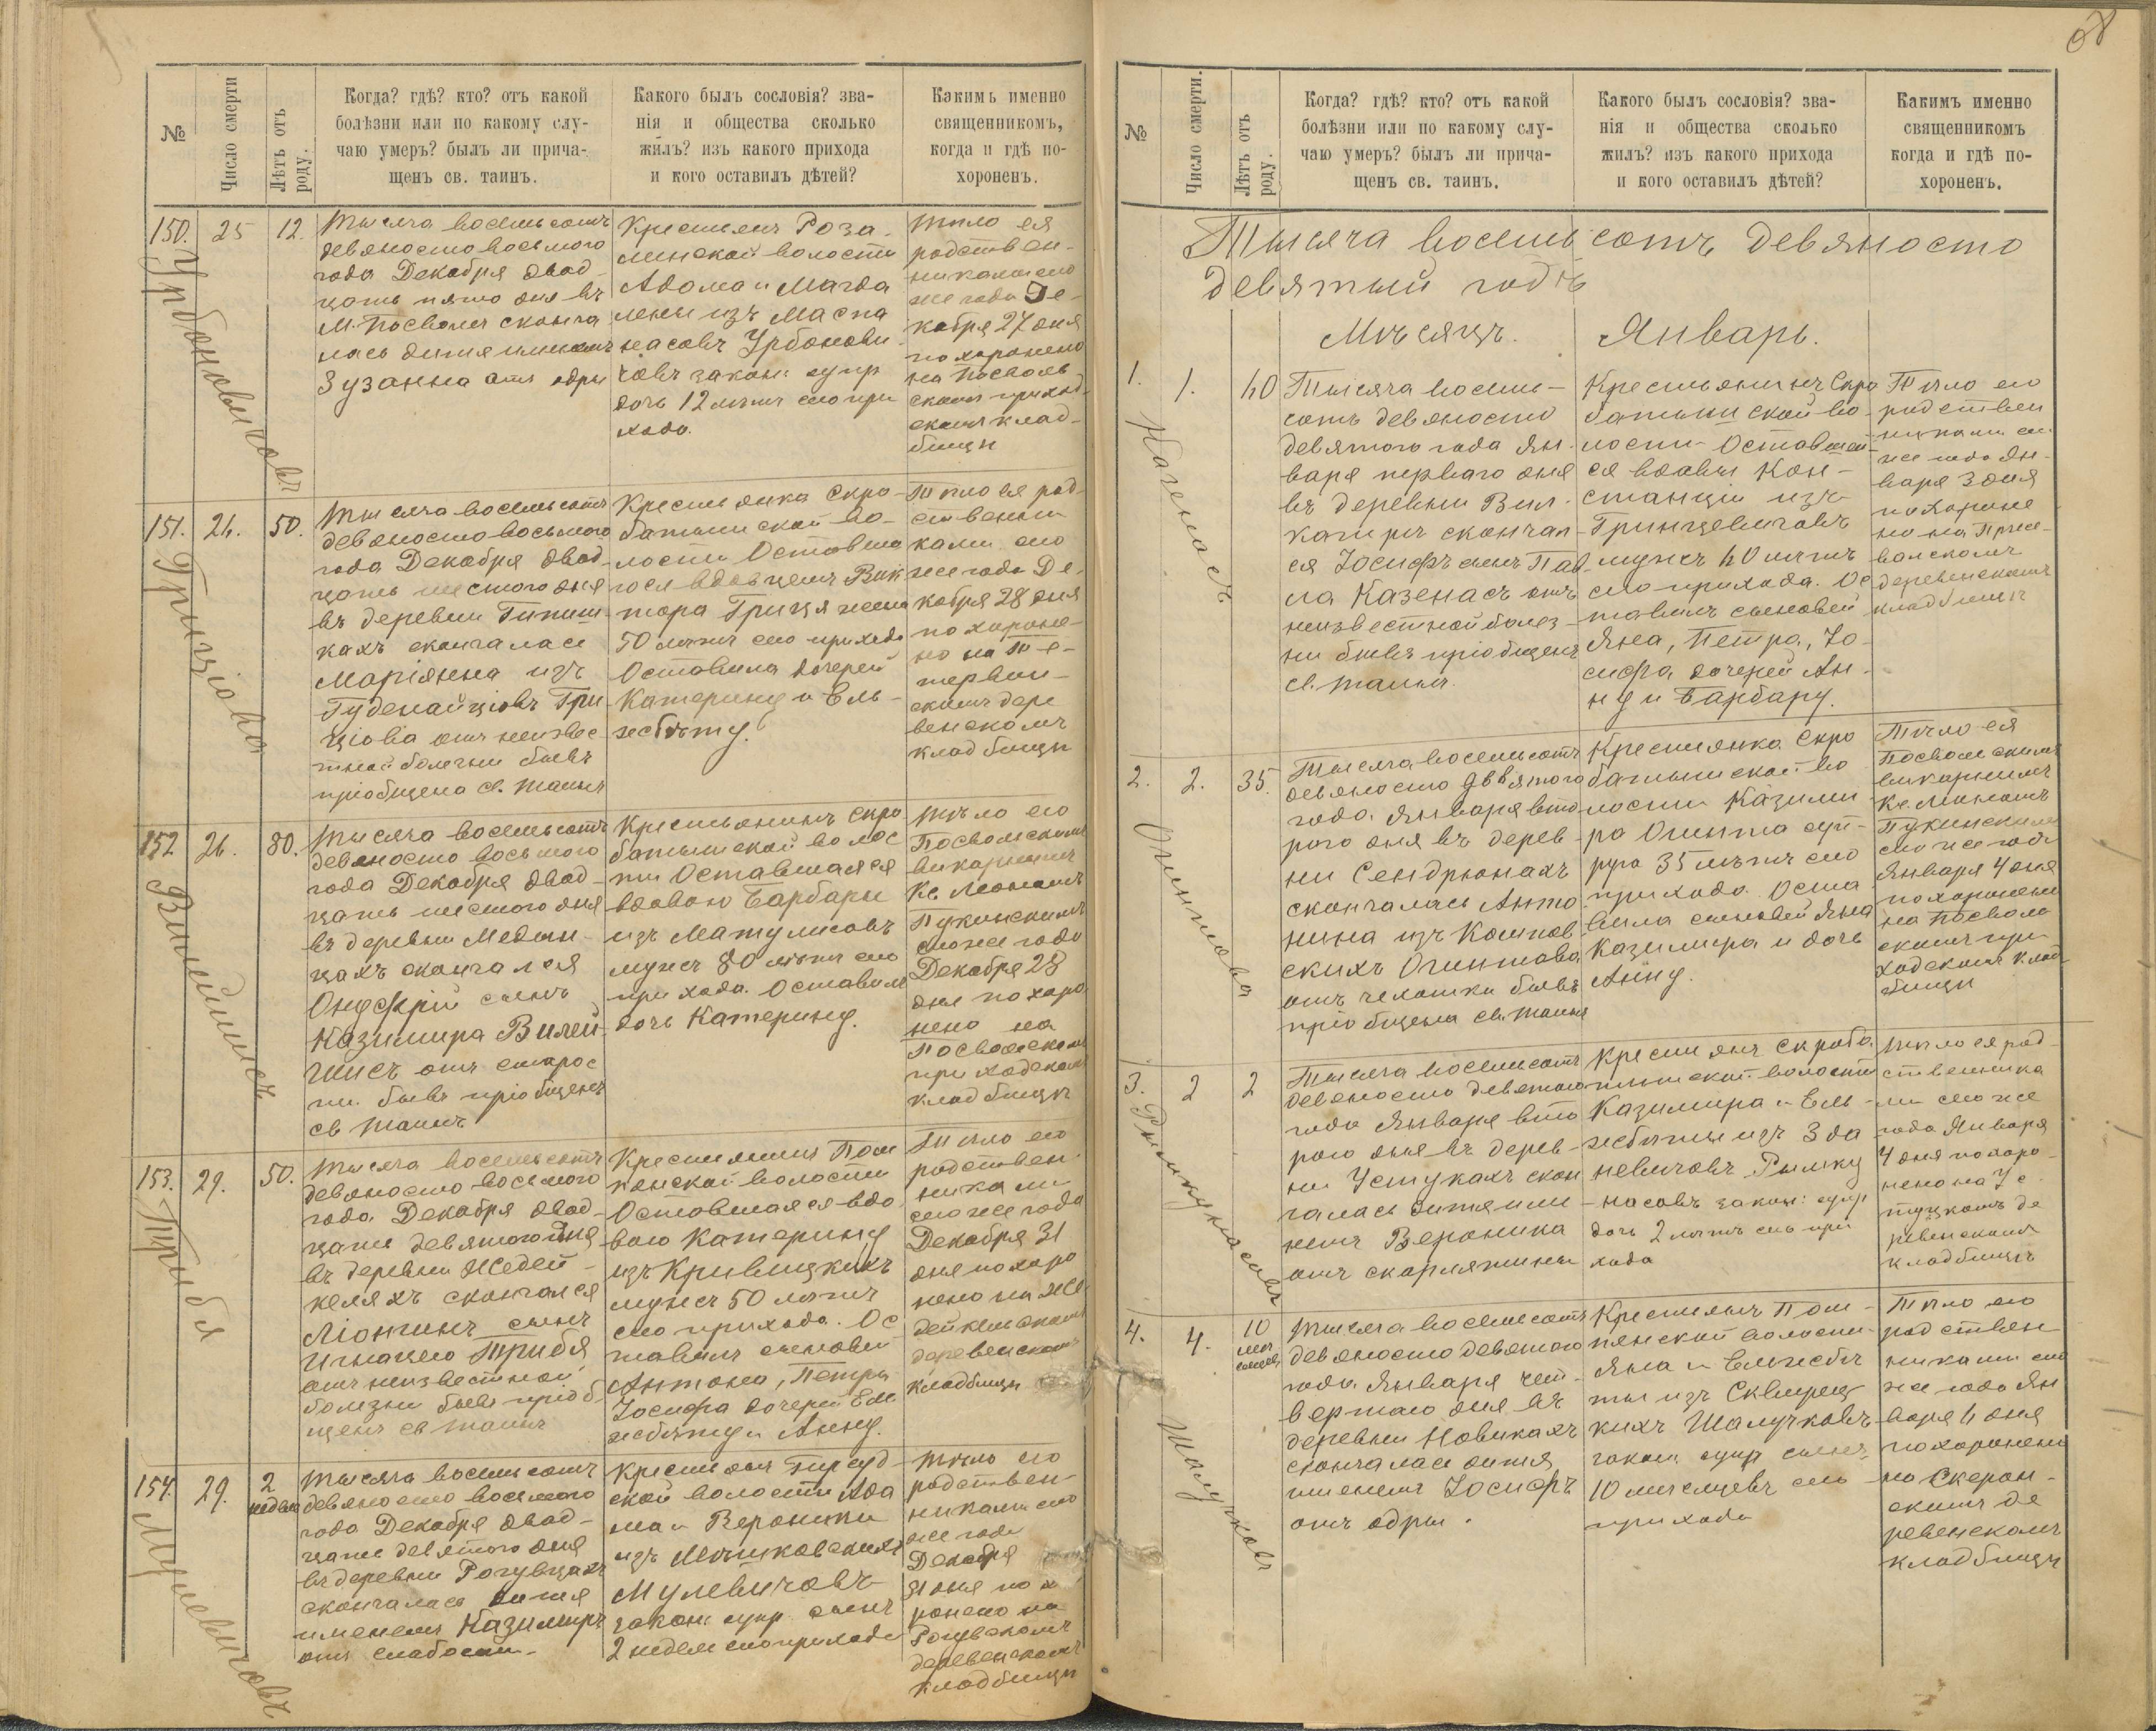 №
Число смерти
Лѣтъ отъ роду.
Когда? гдѣ? кто? отъ какой
болѣзни или по какому слу-
чаю умеръ? былъ ли прича-
щенъ св. таинъ.
Какого былъ сословія? зва-
нія и общества сколько
жилъ? изъ какого прихода
и кого оставилъ дѣтей?
Какимъ именно
священникомъ,
когда и гдѣ по-
хороненъ.
150.
Урбоновичовъ
25
12.
Тысяча восемьсотъ
девяносто восьмого
года Декабря двад-
цать пято дня въ
М. Посволи сконча
лась дитя именемъ
Зузанна отъ одры
Крестьянъ Роза-
линской волости
Адома и Магда
лены изъ Маспа
насовъ Урбонови
човъ закон: супр
дочь 12 лѣтъ сего при
хода.
Тѣло ея
родствен-
никами сего
же года Де-
кабря 27 дня
похоронено
на Посволь
скомъ приход-
скомъ клад-
бищѣ
151.
Грицiова
26.
50.
Тысяча восемьсотъ
девяносто восьмого
года Декабря двад-
цать шестого дня
въ деревни Гипиш-
кахъ скончалась
Маріянна изъ
Гуденайціовъ Гри
ціова отъ неизвес
тной болезни бывъ
пріобщена св. таинъ
Крестьянка Скро-
батышской во-
лости Оставша
гося вдовцемъ Вик
тора Гриця жена
50 лѣтъ сего прихода
Оставила дочерей
Катерину и Ель-
жбѣту.
Тѣло ея род-
ственни
ками сего
же года Де-
кабря 28 дня
похороне-
но на Те-
тервин-
скомъ дере
венскомъ
кладбищѣ
152
Вилейшисъ
26.
80.
Тысяча восемьсотъ
девяносто восьмого
года Декабря двад-
цать шестого дня
въ деревни Медын-
цахъ скончался
Онуфрій сынъ
Казимира Вилей-
шисъ отъ старос
ти бывъ пріобщенъ
св таинъ
Крестьянинъ Скро
батышской волос
ти Оставшаяся
вдовою Барбары
изъ Матулисовъ
мужъ 80 лѣтъ сего
прихода. Оставилъ
дочь Катерину.
Тѣло его
Посвольскимъ
викарнымъ
Кс. Меонамъ
Пукинскимъ
сего же года
Декабря 28
дня похоро
нено на
Посвольскомъ
приходскомъ
кладбищѣ
153.
Трибя
29.
50.
Тысяча восемьсотъ
девяносто восьмого
года Декабря двад-
цать девятого дня
въ деревни Жедей-
келяхъ скончался
Ліонгинъ сынъ
Игнацего Трибя
отъ неизвестной
болезни бывъ пріоб-
щенъ св таинъ
Крестьянинъ Пом
понской волости
Оставшаяся вдо
вою Катерину
изъ Кривицкихъ
мужъ 50 лѣтъ
сего прихода. Ос
тавилъ сыновей
Антона, Петра
Іосифа дочерей Ель
жбѣту и Анну.
Тѣло его
родствен
никами
сего же года
Декабря 31
дня похоро
нено на Же
дейкельскомъ
деревенскомъ
кладбищѣ
154.
Мулевичовъ
29.
2
недели
Тысяча восемьсотъ
девяносто восьмого
года Декабря двад-
цать девятого дня
въ деревни Рогувцахъ
скончалась дитя
именемъ Казимиръ
отъ слабости.
Крестьянъ Гируд-
ской волости Ада
ма и Вероники
изъ Мечиковскихъ
Мулевичовъ
закон: супр сынъ
2 недели сего прихода
Тѣло его
родствен-
никами сего
же года
Декабря
31 дня похо
ронено на
Рогувскомъ
деревенскомъ
кладбищѣ
68
№
Число смерти.
Лѣтъ отъ роду.
Когда? гдѣ? кто? отъ какой
болѣзни или по какому слу-
чаю умеръ? былъ ли прича-
щенъ св. таинъ.
Какого былъ сословія? зва-
нія и общества сколько
жилъ? изъ какого прихода
и кого оставилъ дѣтей?
Какимъ именно
священникомъ
когда и гдѣ по-
хороненъ.
Тысяча восемьсотъ девяносто
девятый годъ
Мѣсяцъ. Январь.
1.
Казенасъ
1.
40
Тысяча восемь-
сотъ девяносто
девятого года Ян-
варя перваго дня
въ деревни Вил-
капирѣ скончал-
ся Іосифъ сынъ Пав
ла Казенасъ отъ
неизвестной болез-
ни бывъ пріобщенъ
св. таинъ.
Крестьянинъ Скро
батышской во-
лости Оставшей-
ся вдовы Кон-
станціи изъ
Гринцевичовъ
мужъ 40 лѣтъ
сего прихода. Ос
тавилъ сыновей
Яна, Петра, Іо-
сифа дочерей Ан-
ну и Барбару.
Тѣло его
родствен
никами сего
же года Ян-
варя 3 дня
похороне
но на
деревенскомъ
кладбищѣ
2.
Огинтова
2.
35.
Тысяча восемьсотъ
девяносто девятого
года Января вто-
рого дня въ дерев-
ни Сендрюнахъ
скончалась Анто-
нина изъ Комнов-
скихъ Огинтова
отъ чехотки бывъ
пріобщена св. таинъ
Крестьянка Скро
батышской во
лости Казими
ра Огинта суп-
руга 35 лѣтъ сего
прихода. Оста
вила сыновей Яна
Казимира и дочь
Анну.
Тѣло ея
Посвольскимъ
викарнымъ
Кс. Меонамъ
Пукинскимъ
сего же года
Января 4 дня
похоронено
на Посволь
скомъ при-
ходскомъ клад
бищѣ
3.
Рымкунасовъ
2
2
Тысяча восемьсотъ
девяносто девятого
года Января вто
рого дня въ дерев-
ни Устукахъ скон
чалась дитя име-
немъ Вероника
отъ скарлятины
Крестьянъ Скроба
тышской волости
Казимира и Ель-
жбѣты изъ Зда
невичовъ Рымку
насовъ закон: супр
дочь 2 лѣтъ сего при
хода
Тѣло ея род-
ственника
ми сего же
года Января
4 дня похоро-
нено на Ус-
туцкомъ де
ревенскомъ
кладбищѣ
4.
Шалучковъ
4.
10
мѣ
сяцевъ
Тысяча восемьсотъ
девяносто девятого
года Января чет-
вертаго дня въ
деревни Новикахъ
скончалась дитя
именемъ Іосифъ
отъ одры.
Крестьянъ Пом-
пянской волости
Яна и Ельжбѣ
ты изъ Сквирец-
кихъ Шалучковъ
закон: супр сынъ
10 мѣсяцевъ сего
прихода
Тѣло его
родствен
никами сего
же года Ян
варя 4 дня
похоронено
на Скерон-
скомъ де
ревенскомъ
кладбищѣ